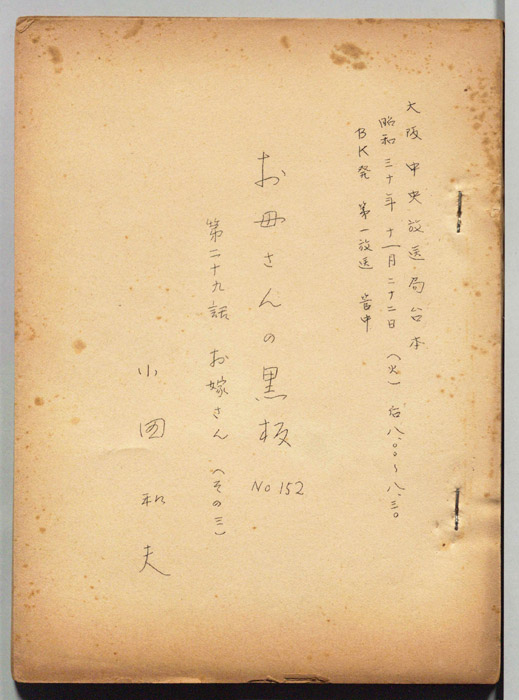 大阪中央放送局台本
昭和三十年十一月二十二日(火)后八.〇〇〜八.三〇
BK発 第一放送 管中
お母さんの黒板 No 152
第二十九話 お嫁さん(その三)
小国和夫